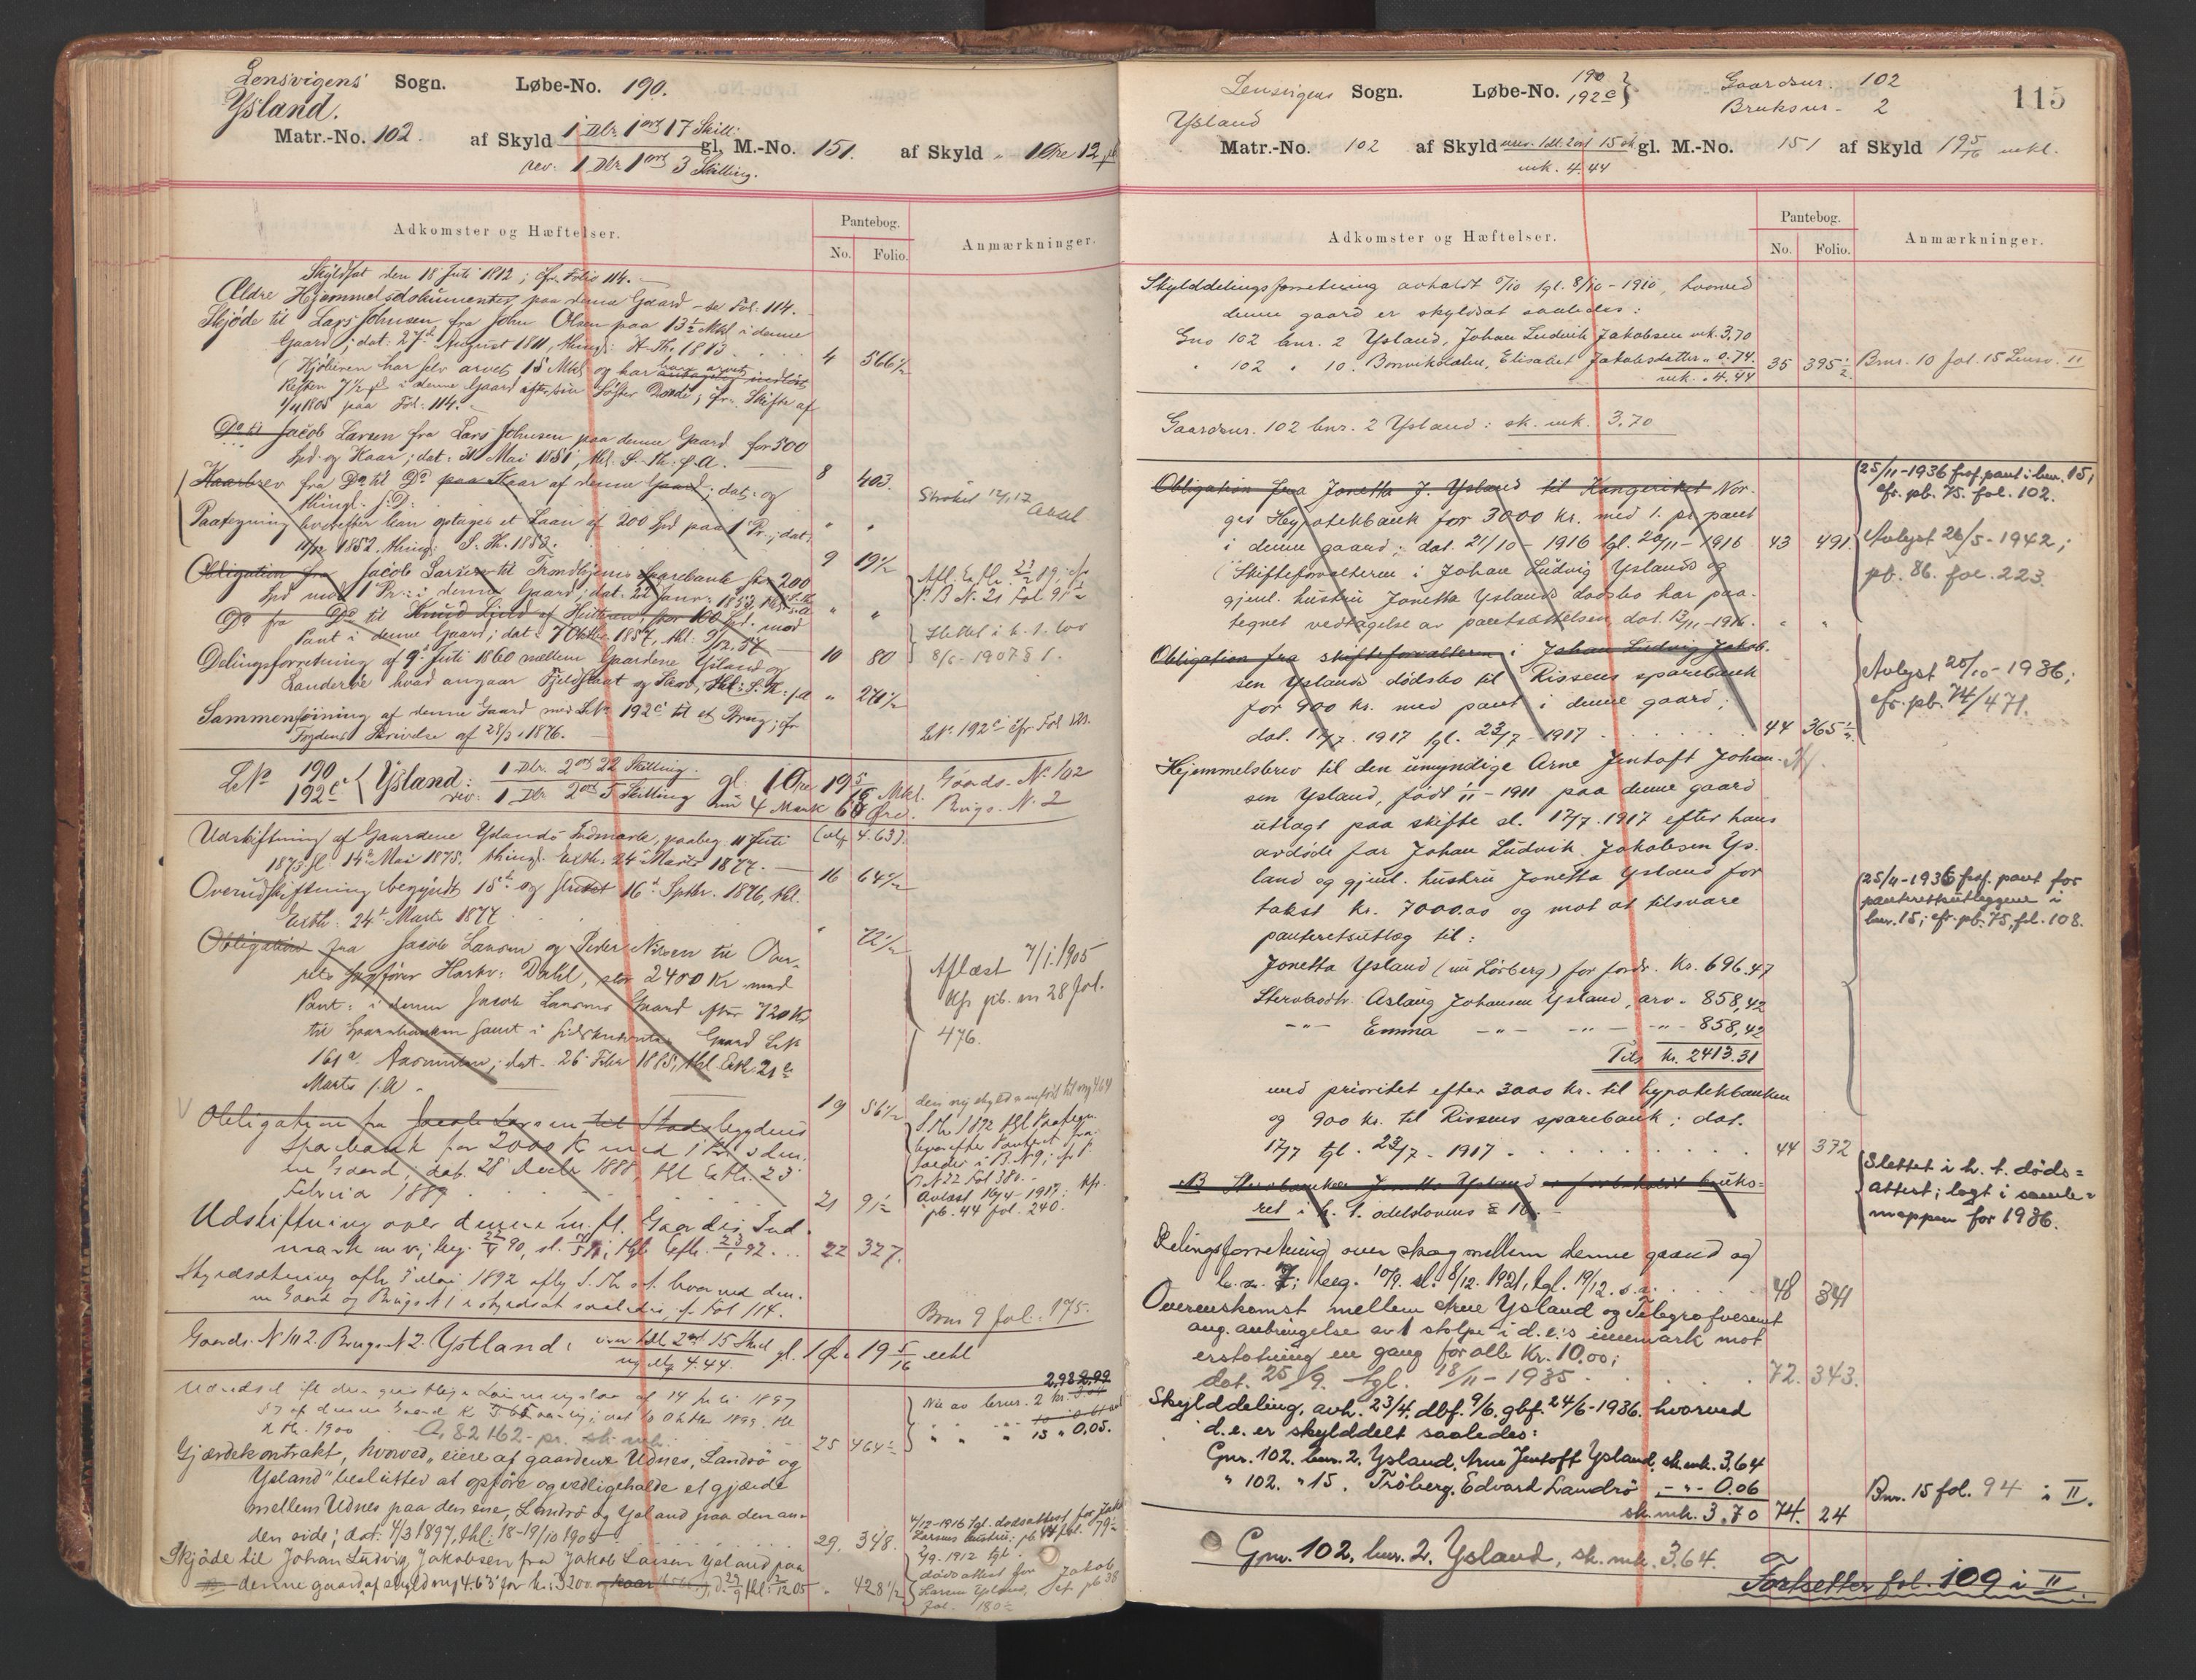 Lensvigens Sogn. Løbe-No. 190.
Ysland.
Matr.-No. 102. af Skyld 1 Dlr 1 ort 17 Skill: gl. M.-No. 151. af Skyld " 1 Øre 12
rev. 1 Dlr 1 ort 3 Skilling.
Adkomster og Hæftelser. Pantebog. No. Folio. Anmærkninger.
Skyldsat den 18 Juli 1812; cfr. Folio 114.
Ældre Hjemmelsdokumenter paa denne Gaard - se Fol. 114.
Skjøde til Lars Johnsen fra John Olsen paa 13½ Mkl i denne
Gaard; dat: 27de August 1811, thingl: H.Th. 1813. 4 566½
(Kjøberen har selv arvet 15 Mkl og har
Resten 7½ i denne Gaard efter sin Søster cfr. Skifte af
1805 paa Fol: 114.
Do til Jacob Larsen fra Lars Johnsen paa denne Gaard for 500
Spd. og Kaar; dat: 31 Mai 1851, thl. S. Th. s. A. 8 403.
Kaarbrev fra Do til Do paa Kaar af denne Gaard; dat: og
thingl. s. D: " "
Paategning hvorefter kan optages et Laan af 200 Spd paa 1 Pr.; dat.
1852. thingl: S. Th. 1853. 9 19½
Strøket 12/12 17
Obligation fra Jacob Larsen til Trondhjems Sparebank for 200
Spd mod 1 Pr. i denne Gaard; dat: 22 Janr. 1853, " "
Do fra Do til Knud for 100 Spd. mod
Pant i denne Gaard; dat: 7 Oktbr 1857, thl: 9/12 57 10 80
Slettet i h. t. lov
8/6 - 1907 § 1.
Delingsforretning af 9de Juli 1860 mellem Gaardene Ysland og
Landerøe hvad angaar Fjeldslaat og Skov; thl: S. Th. s. A " 271½
Sammenføining af denne Gaard med LNo 192c til et Brug; cfr
Fogdens Skrivelse af 28/3 1876.
LNo 192c cfr Fol 121.
LNo 190 192c Ysland: 1 Dlr. 2 ort 22 Skilling. gl: 1 Øre 19 5/16 Mkl.
rev: 1 Dlr 2 ort 5 Skilling nu 4 Mark 68 Øre.
Gaards. No 102
Brugs. No 2
Udskiftning af Gaardene Yslands Indmark, paabeg. 11 Juli
1873 sl. 14de Mai 1875. thingl. Extr. 24de Marts 1877. 16 64½
Overudskiftning begyndt 15de og sluttet 16de Septbr. 1876, thl.
Extr: 24de Marts 1877. " 72½
Obligation fra Jacob Larsen og Peder Nilsen til Over-
retssagfører Hartv: Dahl, stor 2400 Kr mod
Pant: i denne Jacob Larsens Gaard efter 720 Kr
til Sparebanken samt i Gaard LNo
161a Aasmulen; dat. 26 Febr 1885, thl. Extr. 21de
Marts s. A. 19 56½
Aflæst 7/1. 1905
Kfr pb. no 28 fol.
476.
Obligation fra Jacob Larsen til Stadsbygdens
Sparebank for 2000 Kr med 1 Pr. i den-
ne Gaard, dat. 28 Decbr 1888, thl Extr. 23
Februar 1889 21 91½
Avlæst 16/4 - 1917: kfr.
pb. 44 fol. 240.
Udskiftning over denne m. fl. Gaardes Ind-
mark m. v.; beg. 90, sl. , thgl Extr. 92. 22 327.
Skyldsætning afh. 5 Mai 1892 afly S. Th s. A. hvorved den-
ne Gaard og Brugs N 1 er skyldsat saaledes, cf Fol 114.
Brno 9 fol. 175.
Gaards. N 102. Brugs N 2. Ystland: 1 Dl 2 ort 15 Skil gl. 1 Øre 19 5/16 mkl
ny skyld 4.44.
1900 25 464½
Gjærdekontrakt, hvorved "eiere af gaardene Udnes, Landrø og
Ysland" beslutter at opføre og vedligeholde et gjærde
mellem Udnes paa den ene, Landrø og Ysland paa den an-
den side; dat: 4/3 1897, thl: 18-19/10 1905 29. 348.
Skjøde til Johan Ludvig Jakobsen fra Jakob Larsen Ysland paa
denne gaard af skyld mk 4.63 for kr. 3200. " 428½
Lensvigens Sogn. Løbe-No. 190 192c Gaardsnr. 102
Bruksnr. 2
115
Ysland
Matr.-No. 102 af Skyld 1 dl. 2 ort 15 sk gl. M.-No. 151 af Skyld 19 5/16 mkl.
mk. 4.44
Adkomster og Hæftelser. Pantebog. No. Folio. Anmærkninger.
Skylddelingsforretning avholdt 5/10 tgl. 8/10 - 1910, hvorved
denne gaard er skyldsat saaledes:
Gno 102 bnr. 2 Ysland, Johan Ludvik Jakobsen mk. 3.70
" 102 " 10. Bonvikholm, Elisabet Jakobsdatter " 0.74. 35 395½ Bnr. 10 fol. 15 Lensv. II
mk. 4.44
Gaardsnr. 102 bnr. 2 Ysland: sk. mk. 3.70
Obligation fra Jonetta J. Ysland til Kongeriket Nor-
ges Hypotekbank for 3000 kr. med 1. pr. pant
i denne gaard; dat. 21/10 - 1916 tgl. 20/11 - 1916 43 491.
25/11-1936 fraf. pant i bnr. 15,
cfr. pb. 75. fol. 102.
Avlyst 26/5 - 1942;
pb. 86. fol. 223.
(Skifteforvalteren i Johan Ludvig Yslands og
gjenl. hustru Jonetta Yslands dødsbo har paa-
tegnet vedtagelse av pantsættelsen, dat. 13/11 - 1916. " "
Obligation fra skifteforvalteren i Johan Ludvig Jakob-
sen Yslands dødsbo til Rissens sparebank
for 900 kr. med pant i denne gaard;
dat. 17/7. 1917 tgl. 23/7 - 1917 44 365½.
Avlyst 25/10 - 1936;
cfr. pb. 74/471.
Hjemmelsbrev til den umyndige Arne Jentoft Johan-
sen Ysland, født - 1911 paa denne gaard
utlagt paa skifte sl. 17/7. 1917 efter hans
avdøde far Johan Ludvik Jakobsen Ys-
land og gjenl. hustru Jonetta Ysland for
takst kr. 7000.00 og mot at tilsvare
panteretsutlæg til:
Jonetta Ysland (nu Lørberg) for fordr. Kr. 696.47
Stervbodtr. Aslaug Johansen Ysland, arv - 858,42
-"- Emma -"- -"- -"- 858,42
Tils kr. 2413.31
med prioritet efter 3000 kr. til hypotekbanken
og 900 kr. til Rissens sparebank; dat.
17/7 tgl. 23/7 - 1917 44 372
25/11-1936 fraf. pant for
panteretsutleggene i
bnr. 15; cfr. pb. 75, fol. 108.
NB Jonetta Ysland forbeholdt bruks-
ret i h. t. odelslovens § 16.
Slettet i h. t. døds-
attest; lagt i samle-
mappen for 1936.
Delingsforretning over skog mellem denne gaard og
b. n. 7; beg. 10/9. sl. 8/12. 1921, tgl. 19/12. s. a. 48 341
Overenskomst mellem Arne Ysland og Telegrafvesenet
ang. anbringelse av 1 stolpe i d. e.'s innmark mot
erstatning en gang for alle Kr. 10.00;
dat. 25/9. tgl. 18/11 - 1935 72. 343.
Skylddeling, avh. 23/4. dbf. 9/6. gbf. 24/6-1936. hvorved
d. e. er skylddelt saaledes:
Gnr. 102. bnr. 2. Ysland, Arne Jentoft Ysland, sk. mk. 3,64
" 102. " 15. Trøberg, Edvard Landrø -"- 0.06
sk. mk. 3.70 74. 24 Bnr. 15 fol. 94 i II.
Gnr. 102, bnr. 2. Ysland, sk. mk. 3,64.
Fortsetter fol. 109 i II